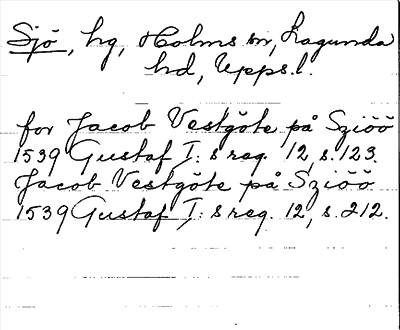 Sjö, hg, Holms sn, Lagunda
hd, Upps.l.
for Jacob Vestgöte på Sziöö
1539 Gustaf I: s reg. 12, s. 123.
Jacob Vestgöte på Sziöö
1539 Gustaf I: s reg. 12, s. 212.